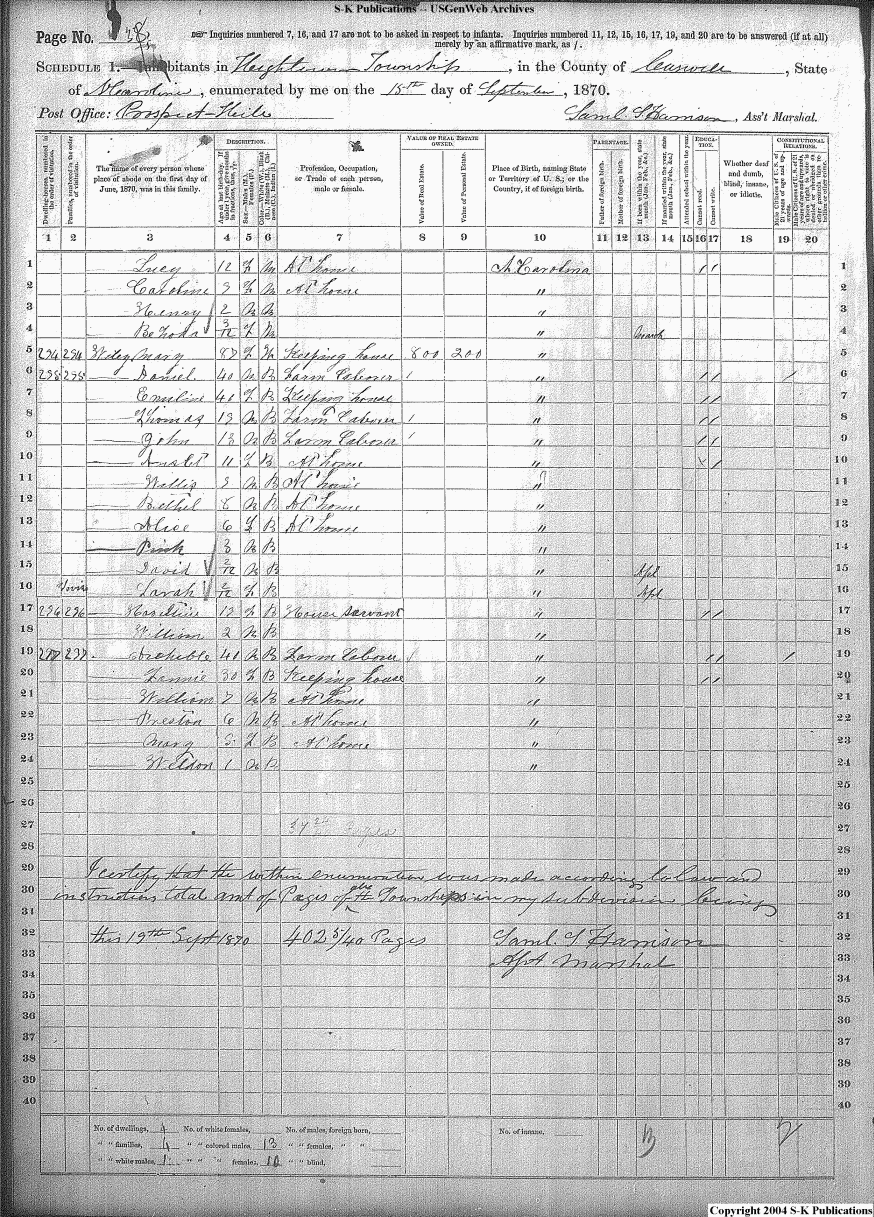 S-K Publications -- USGenWeb Archives
Page No. 38
Inquiries numbered 7, 16, and 17 are not to be asked in respect to infants. Inquiries numbered 11, 12, 15, 16, 17, 19, and 20 are to be answered (if at all) merely by an affirmative mark, as /.
SCHEDULE 1.—Inhabitants in Hightowers Township, in the County of Caswell, State
of N Carolina, enumerated by me on the 15th day of September, 1870.
Post Office: Prospect Hill
Saml. S Harrison, Ass't Marshal.
Dwelling-houses, numbered in the order of visitation.
Families, numbered in the order of visitation.
The name of every person whose place of abode on the first day of June, 1870, was in this family.
DESCRIPTION.
Profession, Occupation, or Trade of each person, male or female.
VALUE OF REAL ESTATE OWNED.
Value of Real Estate.
Value of Personal Estate.
Place of Birth, naming State or Territory of U. S.; or the Country, if of foreign birth.
PARENTAGE.
Father of foreign birth.
Mother of foreign birth.
If born within the year, state month (Jan., Feb., &c.)
If married within the year, state month (Jan., Feb., &c.)
Attended school within the year.
EDUCATION.
Cannot read.
Cannot write.
Whether deaf and dumb, blind, insane, or idiotic.
CONSTITUTIONAL RELATIONS.
1 2 3 4 5 6 7 8 9 10 11 12 13 14 15 16 17 18 19 20
1 — Lucy 12 F M At home N. Carolina / / 1
2 — Caroline 9 F M At home " 2
3 — Henry 2 M M " 3
4 3/12 F M " March 4
5 294 294 Wiley Mary 87 F W Keeping house 800 200 " 5
6 295 295 — Daniel 40 M B Farm Laborer / " / / / 6
7 — Emiline 40 F B Keeping house " / / 7
8 — Thomas 19 M B Farm Laborer / " / / 8
9 — John 13 M B Farm Laborer / " / / 9
10 11 F B At home " / / 10
11 — Willis 9 M B At home " 11
12 — Bethel 8 M B At home " 12
13 — Alice 6 F B At home " 13
14 — Pink 3 M B " 14
15 — David 2/12 M B " Apl 15
16 — Sarah 2/12 F B " Apl 16
17 296 296 — 19 F B House servant " / / 17
18 — William 2 M B " 18
19 297 297 — 41 M B Farm Laborer / " / / / 19
20 — Fannie 30 F B Keeping house " / / 20
21 — William 7 M B At home " 21
22 — Preston 6 M B At home " 22
23 — Mary F B At home " 23
24 — Weldon 1 M B " 24
25 25
26 26
27 27
28 28
29 I certify that the within enumeration was made according to law and 29
30 instructions total amt of Pages of the Townships in my subdivision being 30
31 31
32 this 19th Sept 1870 402 5/40 Pages Saml. S Harrison 32
33 Asst Marshal 33
34 34
35 35
36 36
37 37
38 38
39 39
40 40
No. of dwellings, 4 No. of white females, No. of males, foreign born, No. of insane,
" " families, 4 " " colored males, 13 " " females, " "
" " white males, 1 " " " females, 10 " " blind,
Copyright 2004 S-K Publications